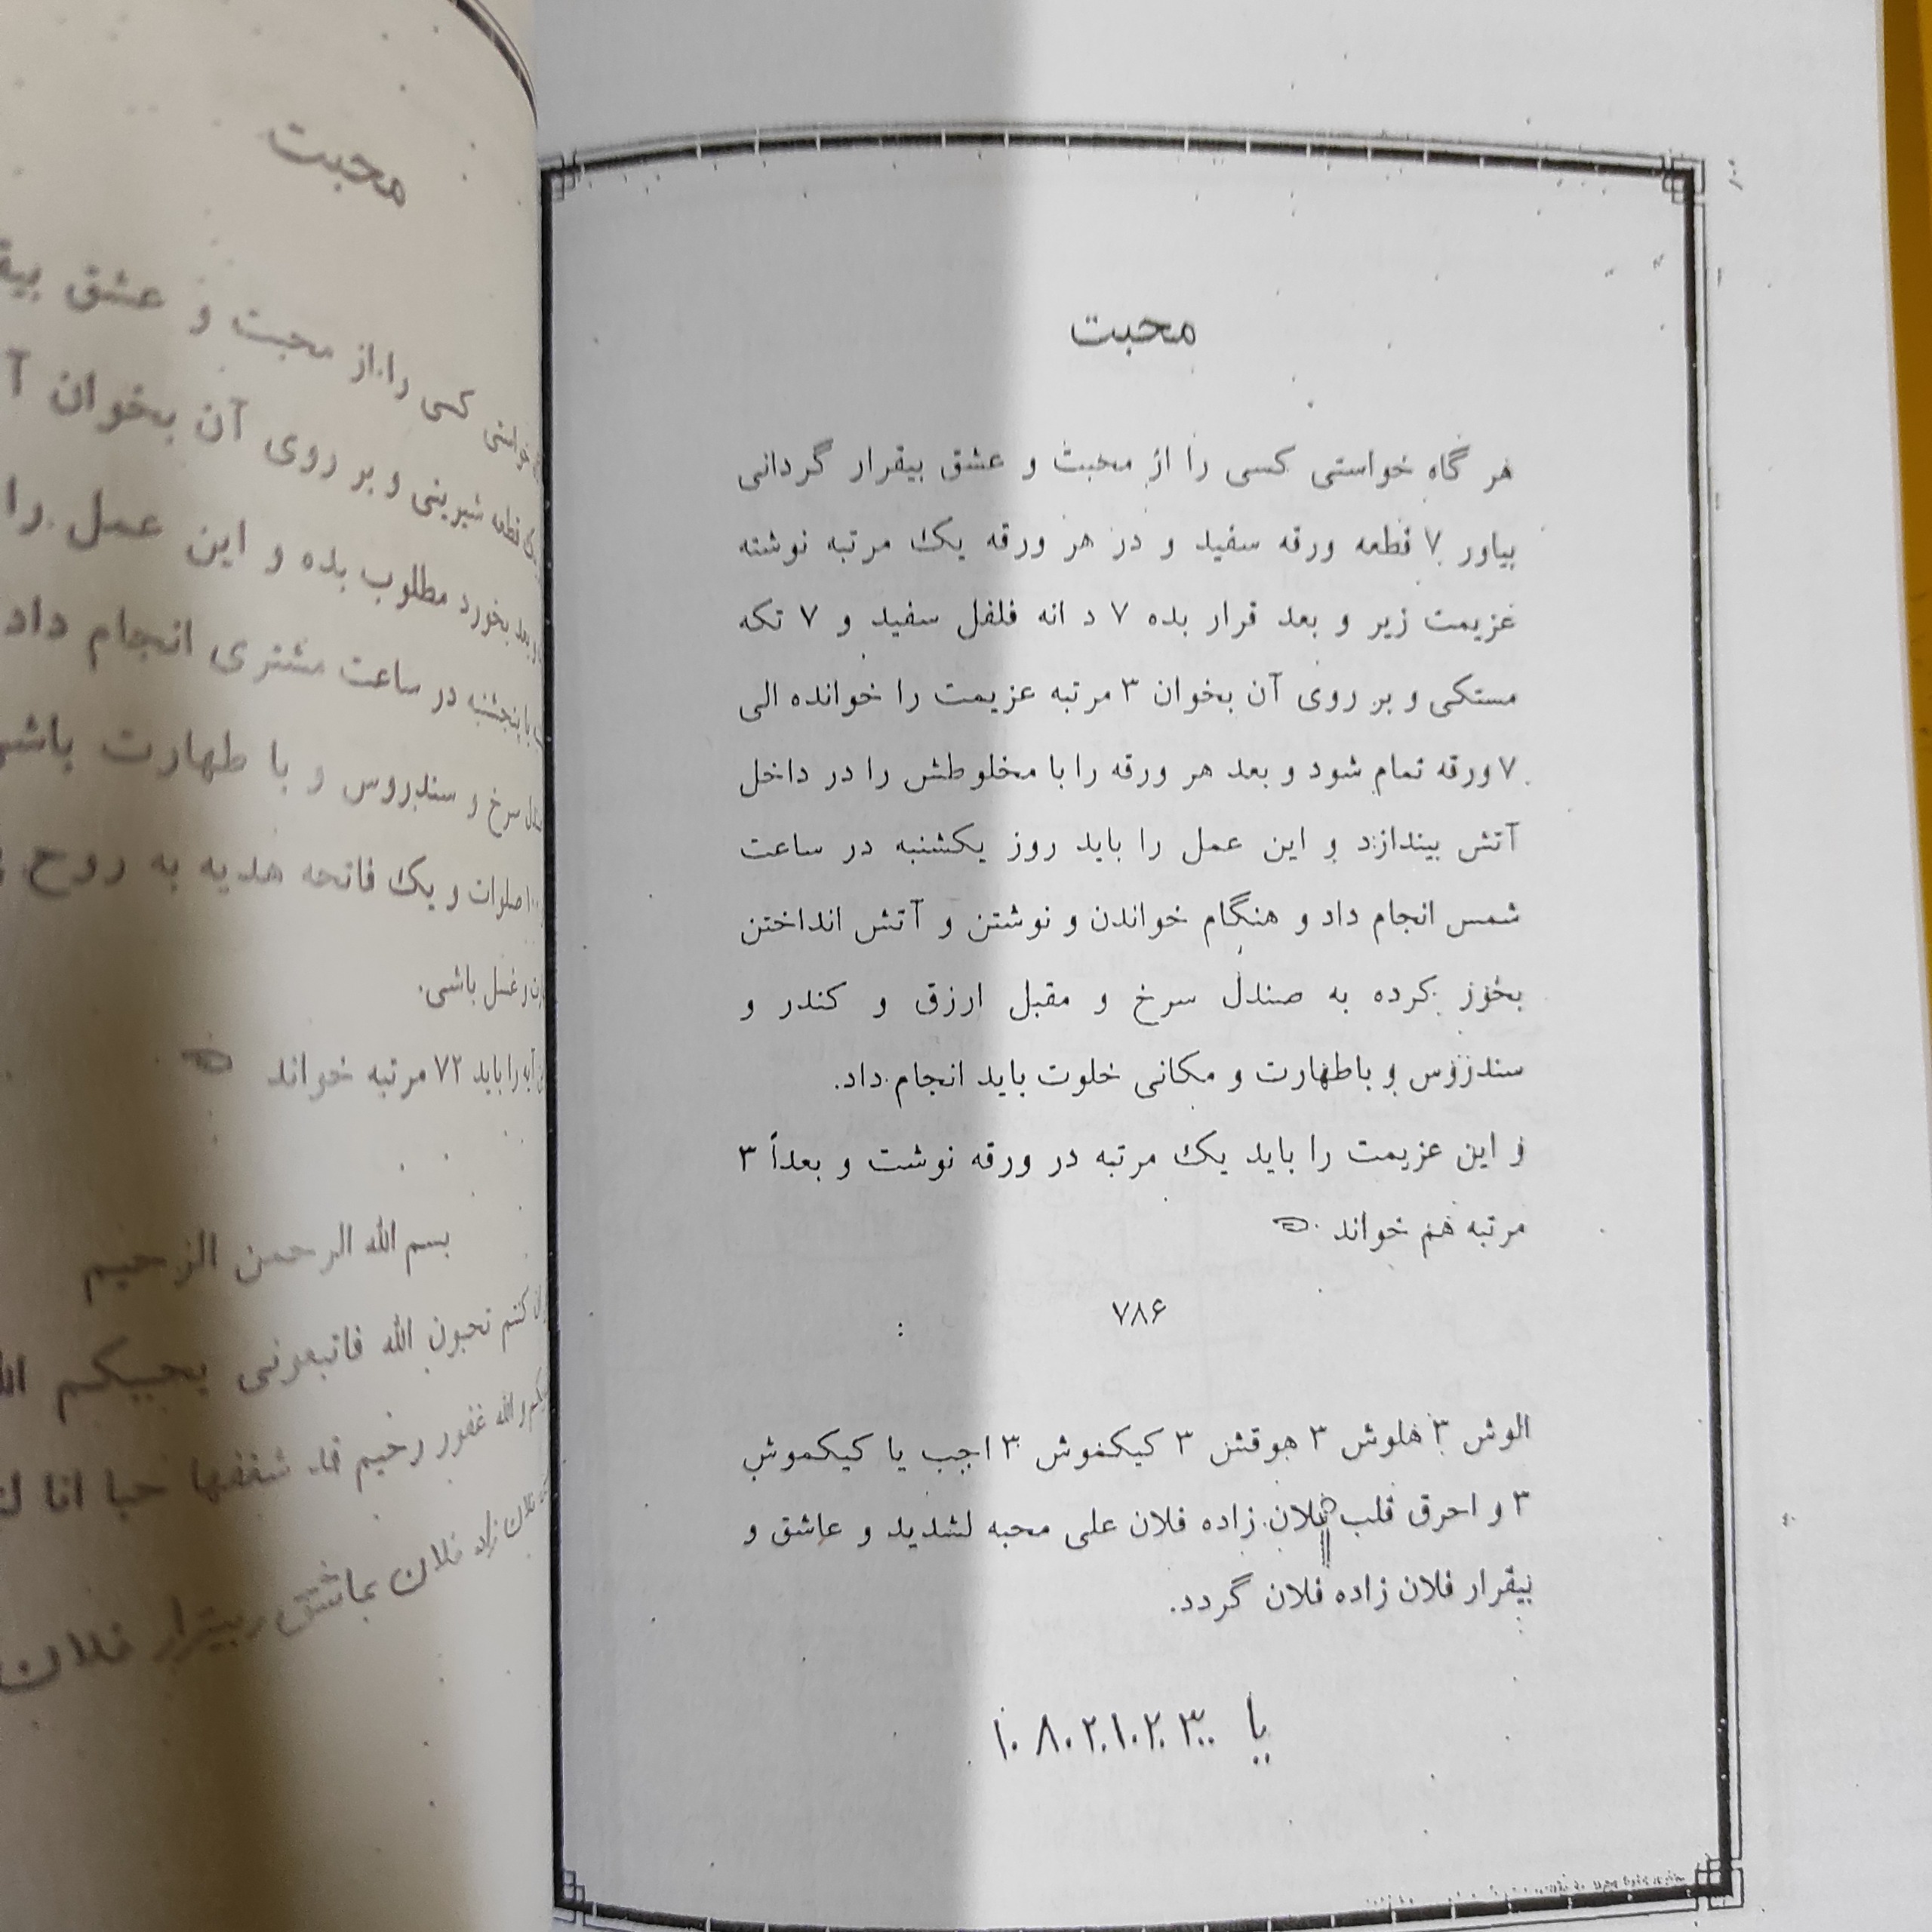 محبت
هر گاه خواستی کسی را از محبت و عشق بیقرار گردانی
بیاور ۷ قطعه ورقه سفید و در هر ورقه یک مرتبه نوشته
عزیمت زیر و بعد قرار بده ۷ د انه فلفل سفید و ۷ تکه
مستکی و بر روی آن بخوان ۳ مرتبه عزیمت را خوانده الی
۷ ورقه تمام شود و بعد هر ورقه را با مخلوطش را در داخل
آتش بیندازد و این عمل را باید روز یکشنبه در ساعت
شمس انجام داد و هنگام خواندن و نوشتن و آتش انداختن
بخور کرده به صندل سرخ و مقبل ارزق و کندر و
سندروس و باطهارت و مکانی خلوت باید انجام داد.
و این عزیمت را باید یک مرتبه در ورقه نوشت و بعداً ۳
مرتبه هم خواند
۷۸۶
الوش ۳ هلوش ۳ هوقش ۳ کیکموش ۳ اجب یا کیکموش
۳ و احرق قلب فلان زاده فلان علی محبه لشدید و عاشق و
بیقرار فلان زاده فلان گردد.
یا
محبت
خواستی کسی را از محبت و عشق
قطعه شیرینی و بر روی آن بخوان
و بعد بخورد مطلوب بده و این عمل را
پنجشنبه در ساعت مشتری انجام داد
سرخ و سندروس و با طهارت
صلوات و یک فاتحه هدیه به روح
و غسل باشی.
آیه را باید ۷۲ مرتبه خواند
بسم الله الرحمن الرحیم
کنتم تحبون الله فاتبعونی یحببکم
والله غفور رحیم قد شغفها حبا انا
فلان زاد فلان بماشق بیقرار فلان